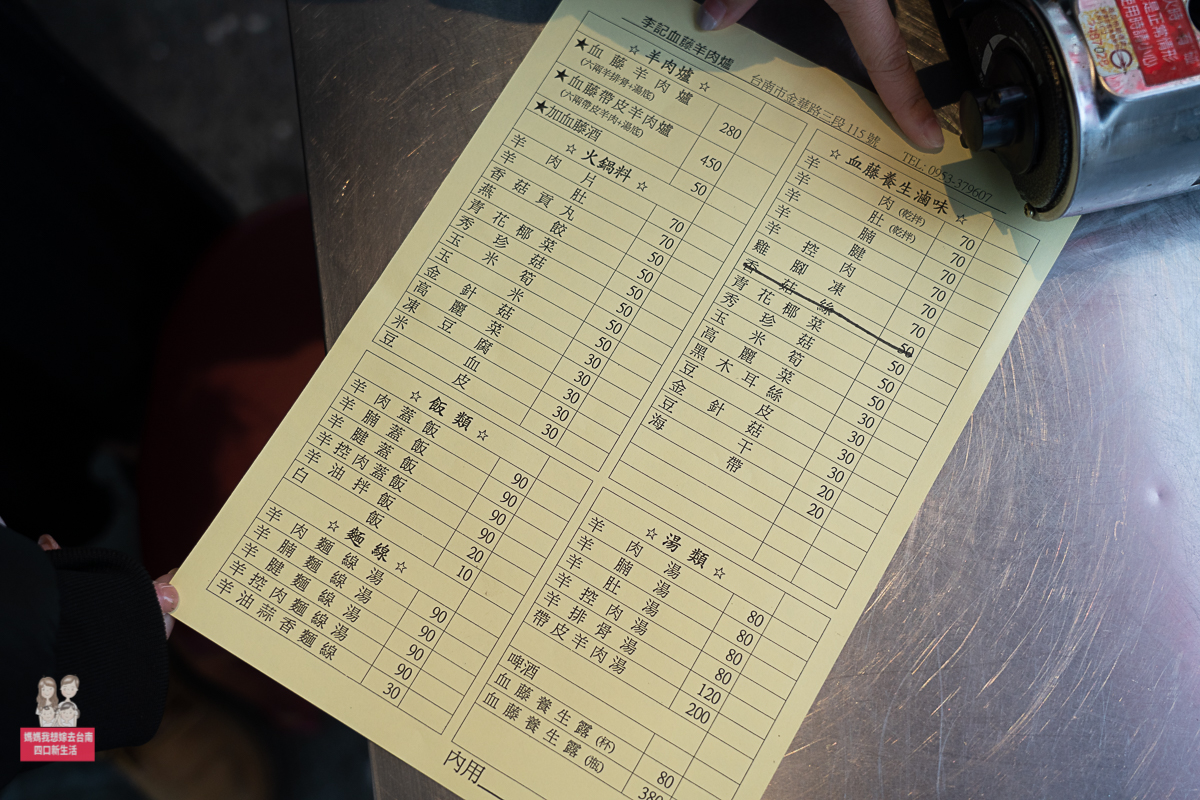 李記血藤羊肉爐
台南市金華路三段115號 TEL: 0953-379607
☆ 羊肉爐 ☆
★血藤羊肉爐 280
(六兩羊排骨+湯底)
★血藤帶皮羊肉爐 450
(六兩帶皮羊肉+湯底)
★加血藤酒 50
☆ 火鍋料 ☆
羊肉片 70
羊肚 70
香菇貢丸 50
燕餃 50
青花椰菜 50
秀珍菇 50
玉米筍 50
玉米 50
金針菇 30
高麗菜 30
凍豆腐 30
米血 30
豆皮 30
☆ 飯類 ☆
羊肉蓋飯 90
羊腩蓋飯 90
羊腱蓋飯 90
羊控肉蓋飯 90
羊油拌飯 20
白飯 10
☆ 麵線 ☆
羊肉麵線湯 90
羊腩麵線湯 90
羊腱麵線湯 90
羊控肉麵線湯 90
羊油蒜香麵線 30
☆ 血藤養生滷味 ☆
羊肉(乾拌) 70
羊肚(乾拌) 70
羊腩 70
羊腱 70
羊控肉 70
雞腳凍 70
香菇絲 50
青花椰菜 50
秀珍菇 50
玉米筍 50
高麗菜 30
黑木耳絲 30
豆皮 30
金針菇 30
豆干 20
海帶 20
☆ 湯類 ☆
羊肉湯 80
羊腩湯 80
羊肚湯 80
羊控肉湯 80
羊排骨湯 120
帶皮羊肉湯 200
啤酒
血藤養生露(杯) 80
血藤養生露(瓶) 380
內用
媽媽我想嫁去台南
四口新生活